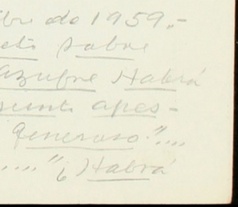 bre de 1959.-
sobre
azufre Habrá
apes-
generoso"....
....."¿Habrá